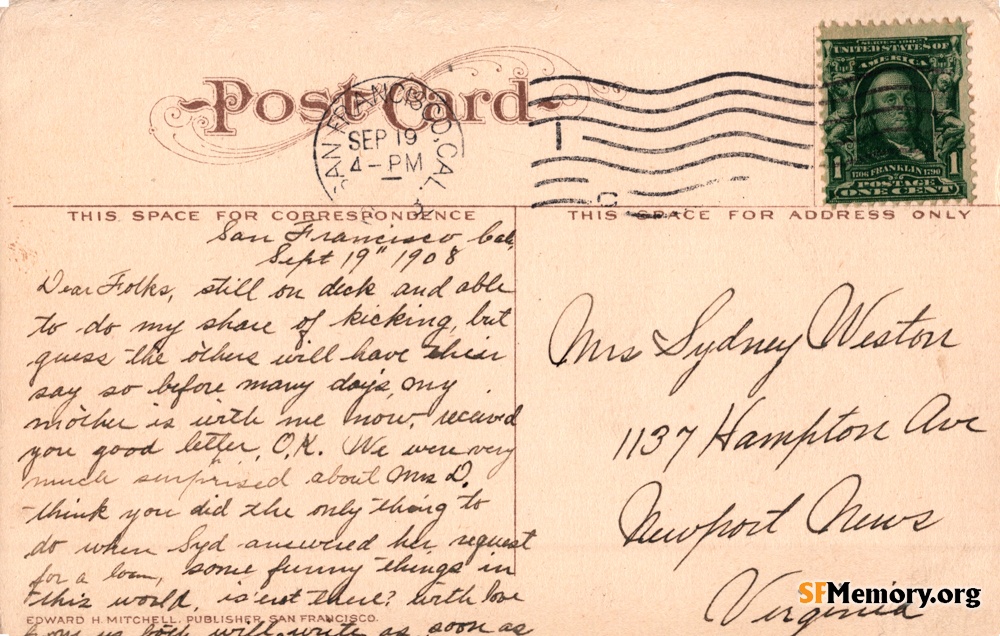 Post Card
SAN FRANCISCO, CAL.
SEP 19
4-PM
SERIES 1902
UNITED STATES OF
AMERICA
1 1
1706 FRANKLIN 1790
POSTAGE
ONE CENT
THIS SPACE FOR CORRESPONDENCE
THIS SPACE FOR ADDRESS ONLY
San Francisco Cal,
Sept 19" 1908
Dear Folks, still on deck and able
to do my share of kicking, but
guess the others will have their
say so before many days, my
mother is with me now, received
you good letter, O.K. We were very
much surprised about Mrs D.
think you did the only thing to
do when Syd answered her request
for a loan, some funny things in
this world, is'ent there? with love
from us both will write as soon as
Mrs Sydney Weston
1137 Hampton Ave
Newport News
Virginia
EDWARD H. MITCHELL, PUBLISHER, SAN FRANCISCO.
SFMemory.org